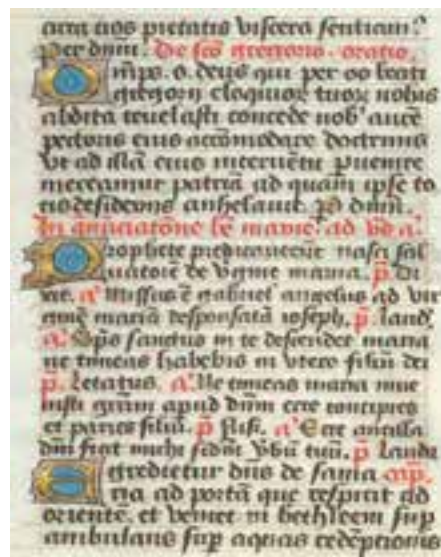 erga nos pietatis viscera sentiam?
Per dnm. De sco gregorio. oratio.
Omps. s. deus qui per os beati
gregorij eloquior tuor nobis
abdita revelasti concede nob' auce
pectoris eius accomodare doctrinis
Vt ad illa eius interventu pvenire
mereamur patria ad quam ipse to
tis desiderijs anhelavit. P dnm.
In anuciatone be marie. ad vs a.
Prophete predicaverut nasci sal
uatore de Vgine maria. p. Di
xit. a Missus e gabriel angelus ad vir
gine maria desponsata ioseph. p. laud.
a. Sps sanctus in te descendet maria
ne timeas habebis in vtero filiu dei
p. letatus. a. Ne timeas maria inve
nisti gram apud dnm ecce concipies
et paries filiu. p Nisi. a Ecce ancilla
dni fiat michi scdm vbu tuu. p lauda
Egredietur dns de sama cap.
ria ad porta que respicit ad
oriente. et veniet in bethleem sup
ambulans sup aquas redeptionis